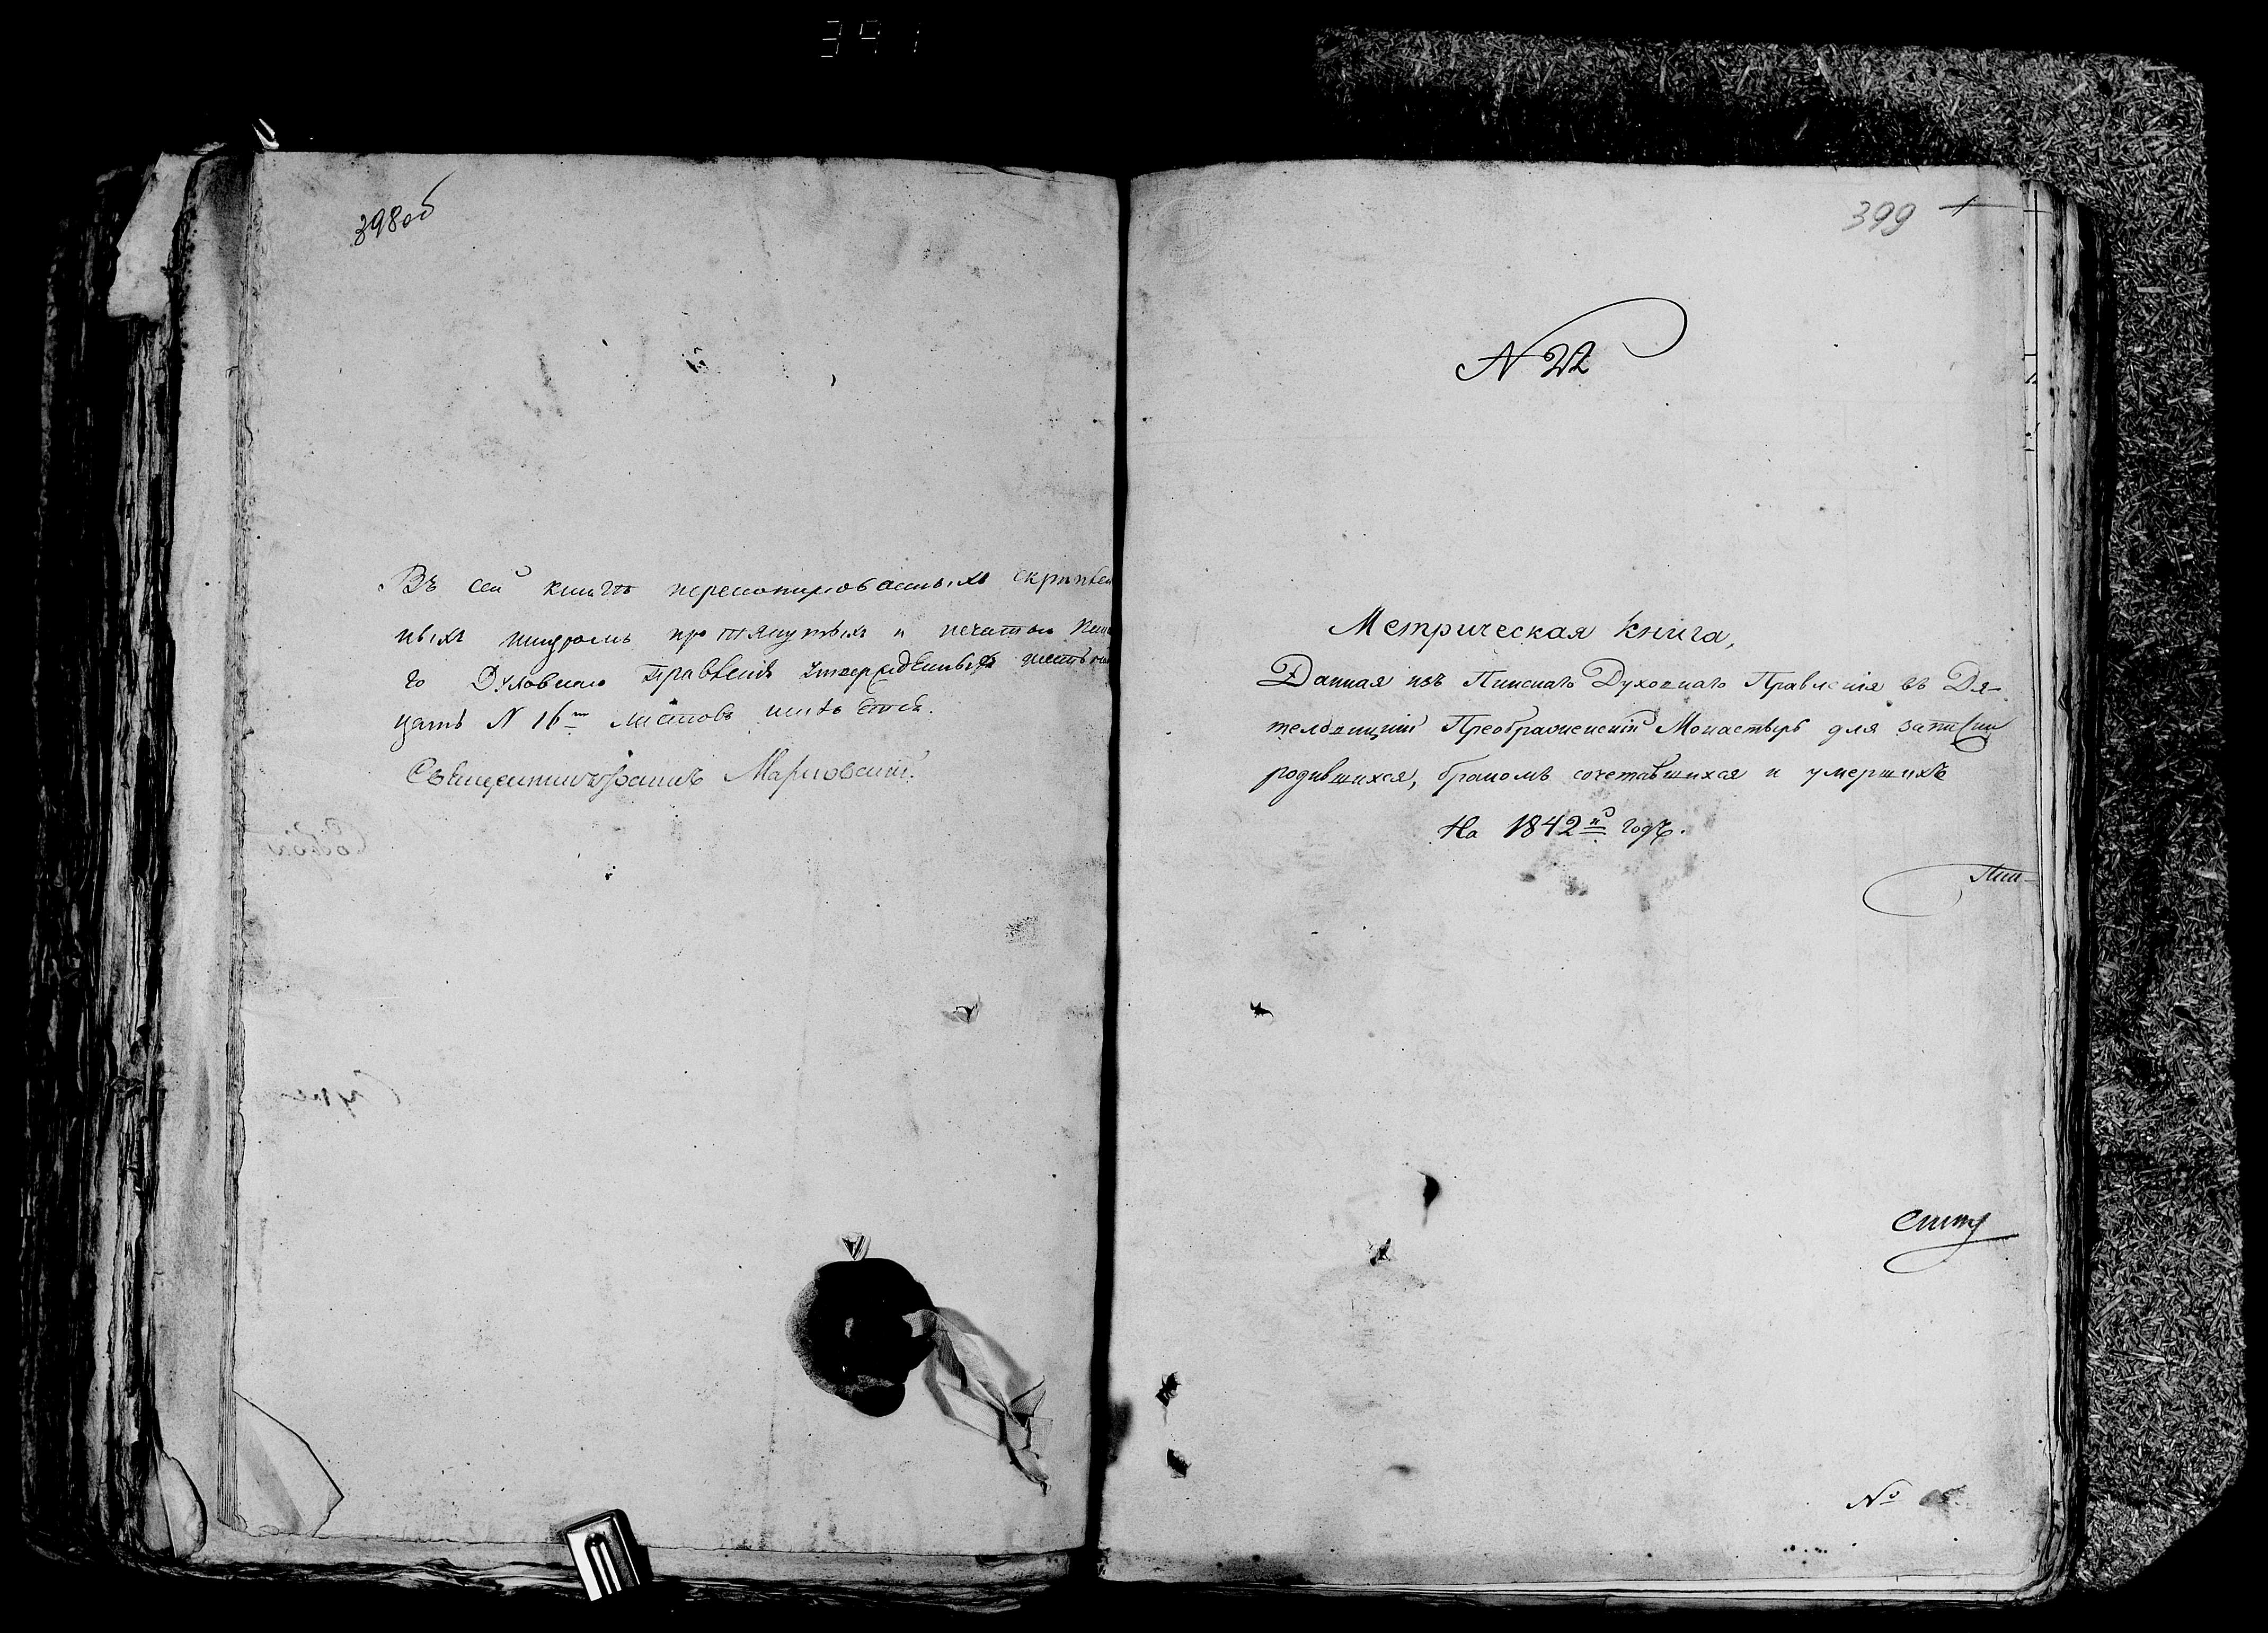 391
398об
Въ сей книгѣ перенотированныхъ скрѣплен
ныхъ шнуромъ протянутыхъ и печатью Пин
го Духовнаго Правленія утвержденныхъ
цать N 16ть листовъ
Марковскій.
399
N 22
Метрическая Книга,
Данная изъ Пинскаго Духовнаго Правленія въ Дя-
теловицкій Преображенскій Монастырь для записки
родившихся, бракомъ сочетавшихся и умершихъ
На 1842й годъ.
Пин-
скій
№